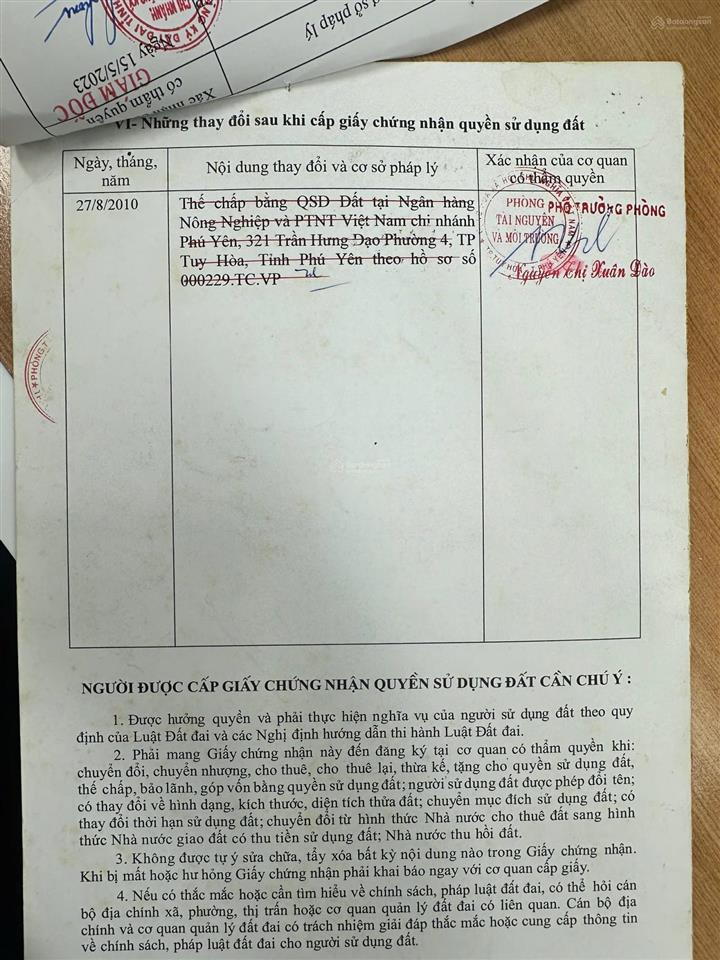 Ngày 15/5/2023
GIÁM ĐỐC
sở pháp lý
có thẩm quyền
VI- Những thay đổi sau khi cấp giấy chứng nhận quyền sử dụng đất
Ngày, tháng, năm
Nội dung thay đổi và cơ sở pháp lý
Xác nhận của cơ quan
có thẩm quyền
27/8/2010
Thế chấp bằng QSD Đất tại Ngân hàng
Nông Nghiệp và PTNT Việt Nam chi nhánh
Phú Yên, 321 Trần Hưng Đạo Phường 4, TP
Tuy Hòa, Tỉnh Phú Yên theo hồ sơ số
000229.TC.VP
PHÓ TRƯỞNG PHÒNG
PHÒNG
TÀI NGUYÊN
VÀ MÔI TRƯỜNG
Nguyễn Thị Xuân Đào
PHÒNG T
NGƯỜI ĐƯỢC CẤP GIẤY CHỨNG NHẬN QUYỀN SỬ DỤNG ĐẤT CẦN CHÚ Ý :
1. Được hưởng quyền và phải thực hiện nghĩa vụ của người sử dụng đất theo quy
định của Luật Đất đai và các Nghị định hướng dẫn thi hành Luật Đất đai.
2. Phải mang Giấy chứng nhận này đến đăng ký tại cơ quan có thẩm quyền khi:
chuyển đổi, chuyển nhượng, cho thuê, cho thuê lại, thừa kế, tặng cho quyền sử dụng đất,
thế chấp, bảo lãnh, góp vốn bằng quyền sử dụng đất; người sử dụng đất được phép đổi tên;
có thay đổi về hình dạng, kích thước, diện tích thửa đất; chuyển mục đích sử dụng đất; có
thay đổi thời hạn sử dụng đất; chuyển đổi từ hình thức Nhà nước cho thuê đất sang hình
thức Nhà nước giao đất có thu tiền sử dụng đất; Nhà nước thu hồi đất.
3. Không được tự ý sửa chữa, tẩy xóa bất kỳ nội dung nào trong Giấy chứng nhận.
Khi bị mất hoặc hư hỏng Giấy chứng nhận phải khai báo ngay với cơ quan cấp giấy.
4. Nếu có thắc mắc hoặc cần tìm hiểu về chính sách, pháp luật đất đai, có thể hỏi cán
bộ địa chính xã, phường, thị trấn hoặc cơ quan quản lý đất đai có liên quan. Cán bộ địa
chính và cơ quan quản lý đất đai có trách nhiệm giải đáp thắc mắc hoặc cung cấp thông tin
về chính sách, pháp luật đất đai cho người sử dụng đất.